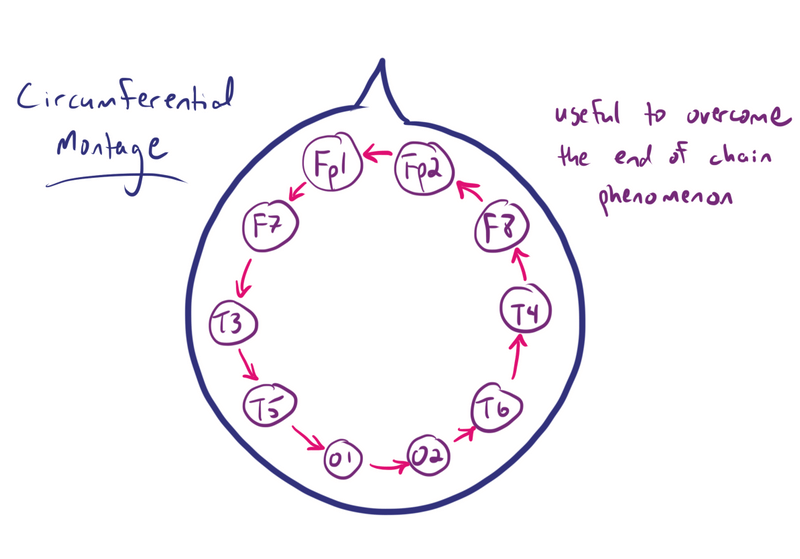 Circumferential
Montage
useful to overcome
the end of chain
phenomenon
Fp1
Fp2
F7
F8
T3
T4
T5
T6
O1
O2